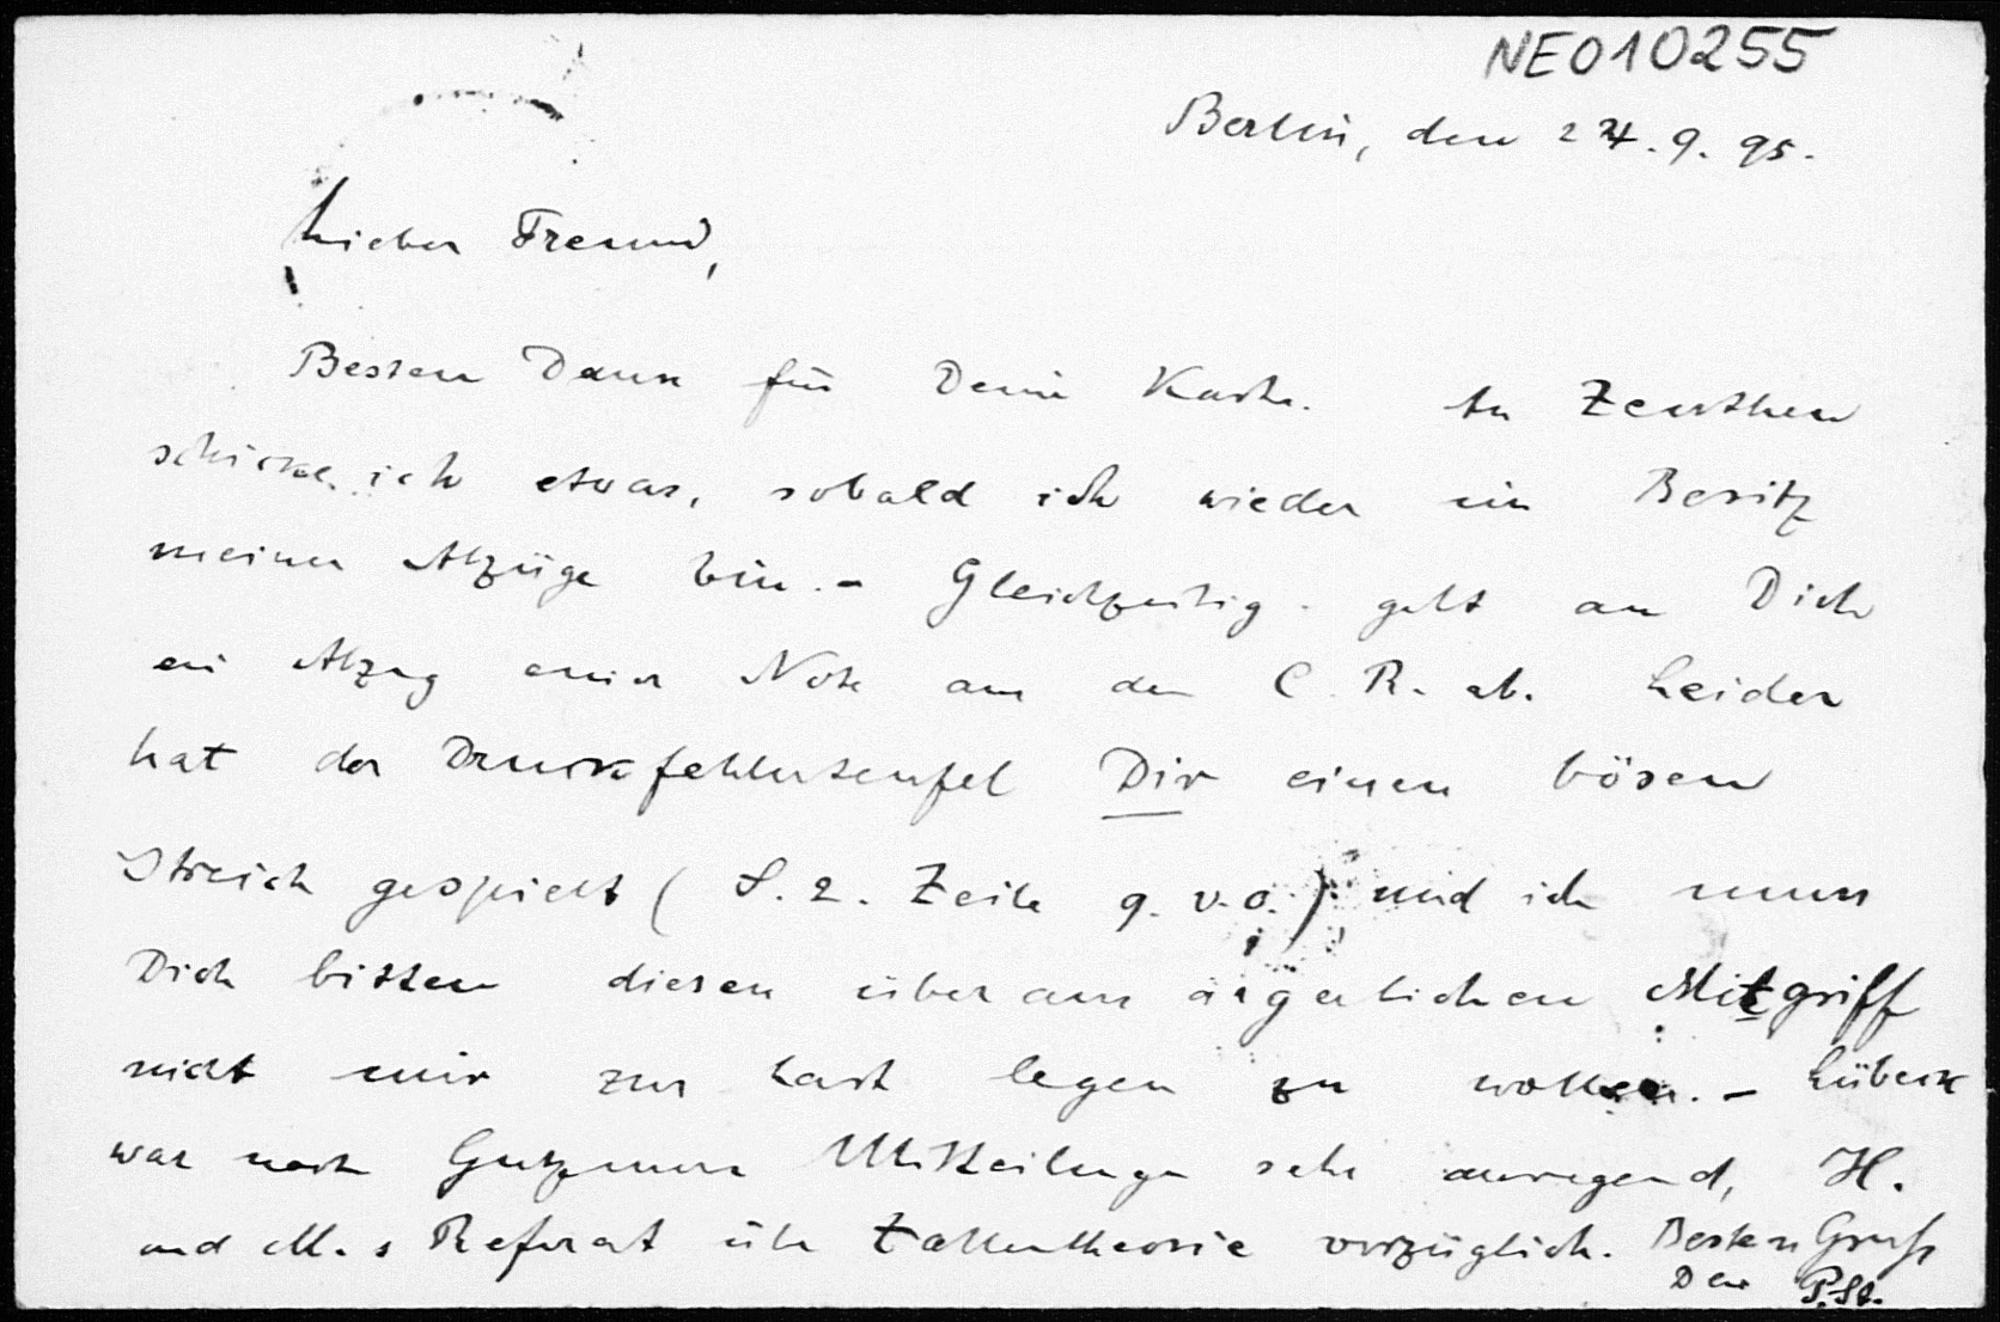 NE010255
Berlin, den 24.9.95.
Lieber Freund,
Besten Dank für Deine Karte. An Zeuthen
schicke ich etwas, sobald ich wieder im Besitz
meiner Abzüge bin. - Gleichzeitig geht an Dich
ein Abzug einer Note aus den C. R. ab. Leider
hat der Druckfehlerteufel Dir einen bösen
Streich gespielt (S. 2. Zeile 9. v. o.) und ich muss
Dich bitten diesen überaus ärgerlichen Mitgriff
nicht mir zur Last legen zu wollen. - Lübeck
war nach Gutzmers Mittheilungen sehr anregend, H.
und M.s Referat über Zahlentheorie vorzüglich. Besten Gruss
Dein P. St.